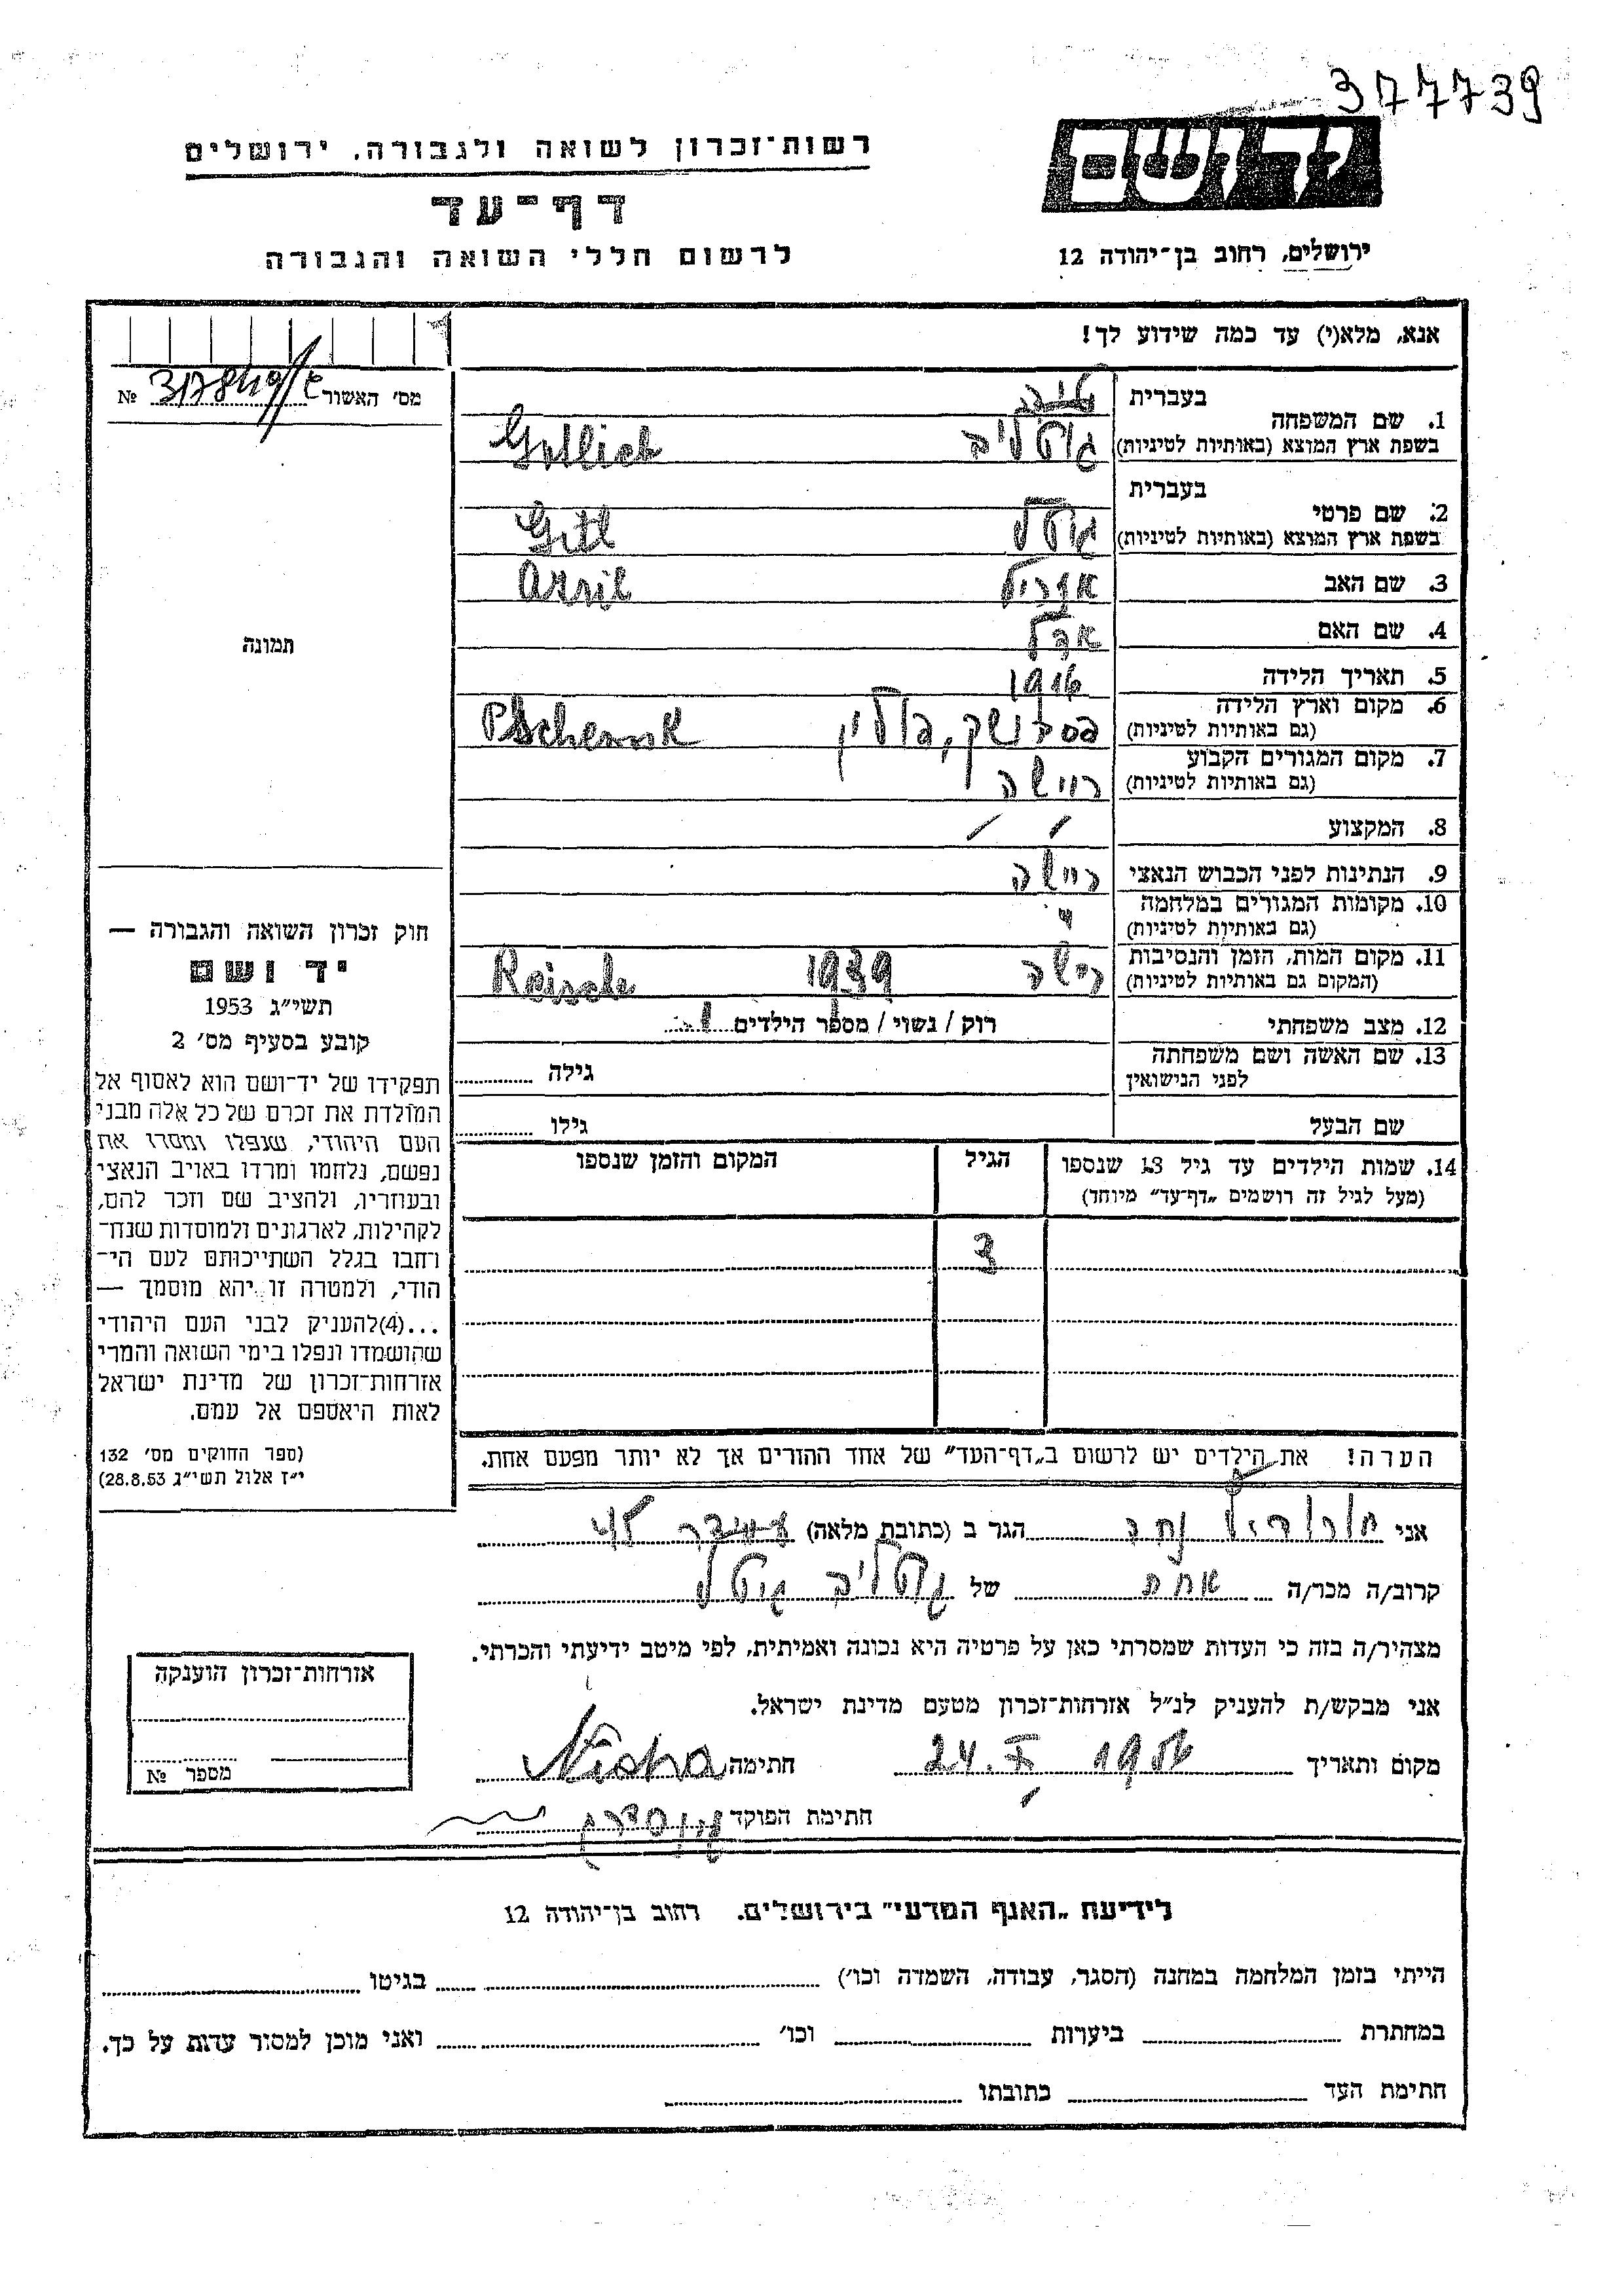 377739
יד ושם
רשות־זכרון לשואה ולגבורה, ירושלים
דף־עד
ירושלים, רחוב בן־יהודה 12
לרשום חללי השואה והגבורה
אנא, מלא(י) עד כמה שידוע לך!
מס׳ האשור №
1. שם המשפחה
בעברית
בשפת ארץ המוצא (באותיות לטיניות) גוטליב Gotlieb
2. שם פרטי
בעברית
בשפת ארץ המוצא (באותיות לטיניות) גיטל Gitl
3. שם האב אזריל Asril
4. שם האם אדל
5. תאריך הלידה 1916
6. מקום וארץ הלידה
(גם באותיות לטיניות) פולין
7. מקום המגורים הקבוע
(גם באותיות לטיניות) ריישה
8. המקצוע / /
9. הנתינות לפני הכבוש הנאצי ריישה
10. מקומות המגורים במלחמה
(גם באותיות לטיניות) "
11. מקום המות, הזמן והנסיבות
(המקום גם באותיות לטיניות) רישה 1939 Reische
12. מצב משפחתי רוק / נשוי / מספר הילדים 1
13. שם האשה ושם משפחתה
לפני הנישואין
גילה
שם הבעל גילו
14. שמות הילדים עד גיל 13 שנספו
(מעל לגיל זה רושמים „דף־עד” מיוחד)
הגיל
המקום והזמן שנספו
3
הערה! את הילדים יש לרשום ב„דף־העד” של אחד ההורים אך לא יותר מפעם אחת.
תמונה
חוק זכרון השואה והגבורה —
יד ושם
תשי״ג 1953
קובע בסעיף מס׳ 2
תפקידו של יד־ושם הוא לאסוף אל
המולדת את זכרם של כל אלה מבני
העם היהודי, שנפלו ומסרו את
נפשם, נלחמו ומרדו באויב הנאצי
ובעוזריו, ולהציב שם וזכר להם,
לקהילות, לארגונים ולמוסדות שנח־
רחבו בגלל השתייכותם לעם הי־
הודי, ולמטרה זו יהא מוסמך —
...(4)להעניק לבני העם היהודי
שהושמדו ונפלו בימי השואה והמרי
אזרחות־זכרון של מדינת ישראל
לאות היאספם אל עמם.
(ספר החוקים מס׳ 132
י״ז אלול תשי״ג 28.8.53)
אני הגר ב (כתובת מלאה) 45
קרוב/ה מכר/ה אחת של גוטליב גיטל
מצהיר/ה בזה כי העדות שמסרתי כאן על פרטיה היא נכונה ואמיתית, לפי מיטב ידיעתי והכרתי.
אני מבקש/ת להעניק לנ״ל אזרחות־זכרון מטעם מדינת ישראל.
מקום ותאריך 24.X 1956 חתימה
חתימת הפוקד
אזרחות־זכרון הוענקה
מספר №
לידיעת „האגף המדעי” בירושלים. רחוב בן־יהודה 12
הייתי בזמן המלחמה במחנה (הסגר, עבודה, השמדה וכו׳) בגיטו
במחתרת ביערות וכו׳ ואני מוכן למסור עדות על כך.
חתימת העד כתובתו